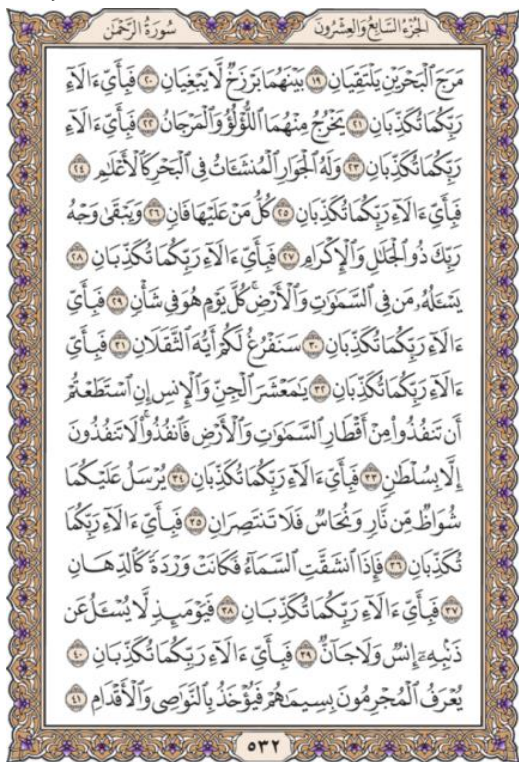 الجُزْءُ السَّابِعُ وَالْعِشْرُونَ
سُورَةُ الرَّحْمٰن
مَرَجَ ٱلْبَحْرَيْنِ يَلْتَقِيَانِ ١٩ بَيْنَهُمَا بَرْزَخٌ لَّا يَبْغِيَانِ ٢٠ فَبِأَيِّ ءَالَآءِ
رَبِّكُمَا تُكَذِّبَانِ ٢١ يَخْرُجُ مِنْهُمَا ٱللُّؤْلُؤُ وَٱلْمَرْجَانُ ٢٢ فَبِأَيِّ ءَالَآءِ
رَبِّكُمَا تُكَذِّبَانِ ٢٣ وَلَهُ ٱلْجَوَارِ ٱلْمُنشَـَٔاتُ فِى ٱلْبَحْرِ كَٱلْأَعْلَٰمِ ٢٤
فَبِأَيِّ ءَالَآءِ رَبِّكُمَا تُكَذِّبَانِ ٢٥ كُلُّ مَنْ عَلَيْهَا فَانٍ ٢٦ وَيَبْقَىٰ وَجْهُ
رَبِّكَ ذُو ٱلْجَلَٰلِ وَٱلْإِكْرَامِ ٢٧ فَبِأَيِّ ءَالَآءِ رَبِّكُمَا تُكَذِّبَانِ ٢٨
يَسْـَٔلُهُۥ مَن فِى ٱلسَّمَٰوَٰتِ وَٱلْأَرْضِ ۚ كُلَّ يَوْمٍ هُوَ فِى شَأْنٍ ٢٩ فَبِأَيِّ
ءَالَآءِ رَبِّكُمَا تُكَذِّبَانِ ٣٠ سَنَفْرُغُ لَكُمْ أَيُّهَ ٱلثَّقَلَانِ ٣١ فَبِأَيِّ
ءَالَآءِ رَبِّكُمَا تُكَذِّبَانِ ٣٢ يَٰمَعْشَرَ ٱلْجِنِّ وَٱلْإِنسِ إِنِ ٱسْتَطَعْتُمْ
أَن تَنفُذُوا۟ مِنْ أَقْطَارِ ٱلسَّمَٰوَٰتِ وَٱلْأَرْضِ فَٱنفُذُوا۟ ۚ لَا تَنفُذُونَ
إِلَّا بِسُلْطَٰنٍ ٣٣ فَبِأَيِّ ءَالَآءِ رَبِّكُمَا تُكَذِّبَانِ ٣٤ يُرْسَلُ عَلَيْكُمَا
شُوَاظٌ مِّن نَّارٍ وَنُحَاسٌ فَلَا تَنتَصِرَانِ ٣٥ فَبِأَيِّ ءَالَآءِ رَبِّكُمَا
تُكَذِّبَانِ ٣٦ فَإِذَا ٱنشَقَّتِ ٱلسَّمَآءُ فَكَانَتْ وَرْدَةً كَٱلدِّهَانِ
٣٧ فَبِأَيِّ ءَالَآءِ رَبِّكُمَا تُكَذِّبَانِ ٣٨ فَيَوْمَئِذٍ لَّا يُسْـَٔلُ عَن
ذَنۢبِهِۦٓ إِنسٌ وَلَا جَآنٌّ ٣٩ فَبِأَيِّ ءَالَآءِ رَبِّكُمَا تُكَذِّبَانِ ٤٠
يُعْرَفُ ٱلْمُجْرِمُونَ بِسِيمَٰهُمْ فَيُؤْخَذُ بِٱلنَّوَٰصِى وَٱلْأَقْدَامِ ٤١
٥٣٢